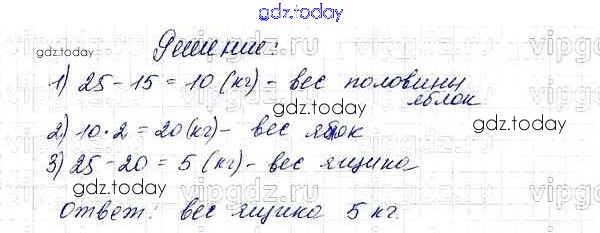 gdz.today
Решение:
1) 25 - 15 = 10 (кг) - вес половины
яблок
2) 10 · 2 = 20 (кг) - вес яблок
3) 25 - 20 = 5 (кг) - вес ящика
Ответ: вес ящика 5 кг.
gdz.today
gdz.today
gdz.today
gdz.today
gdz.today
gdz.today